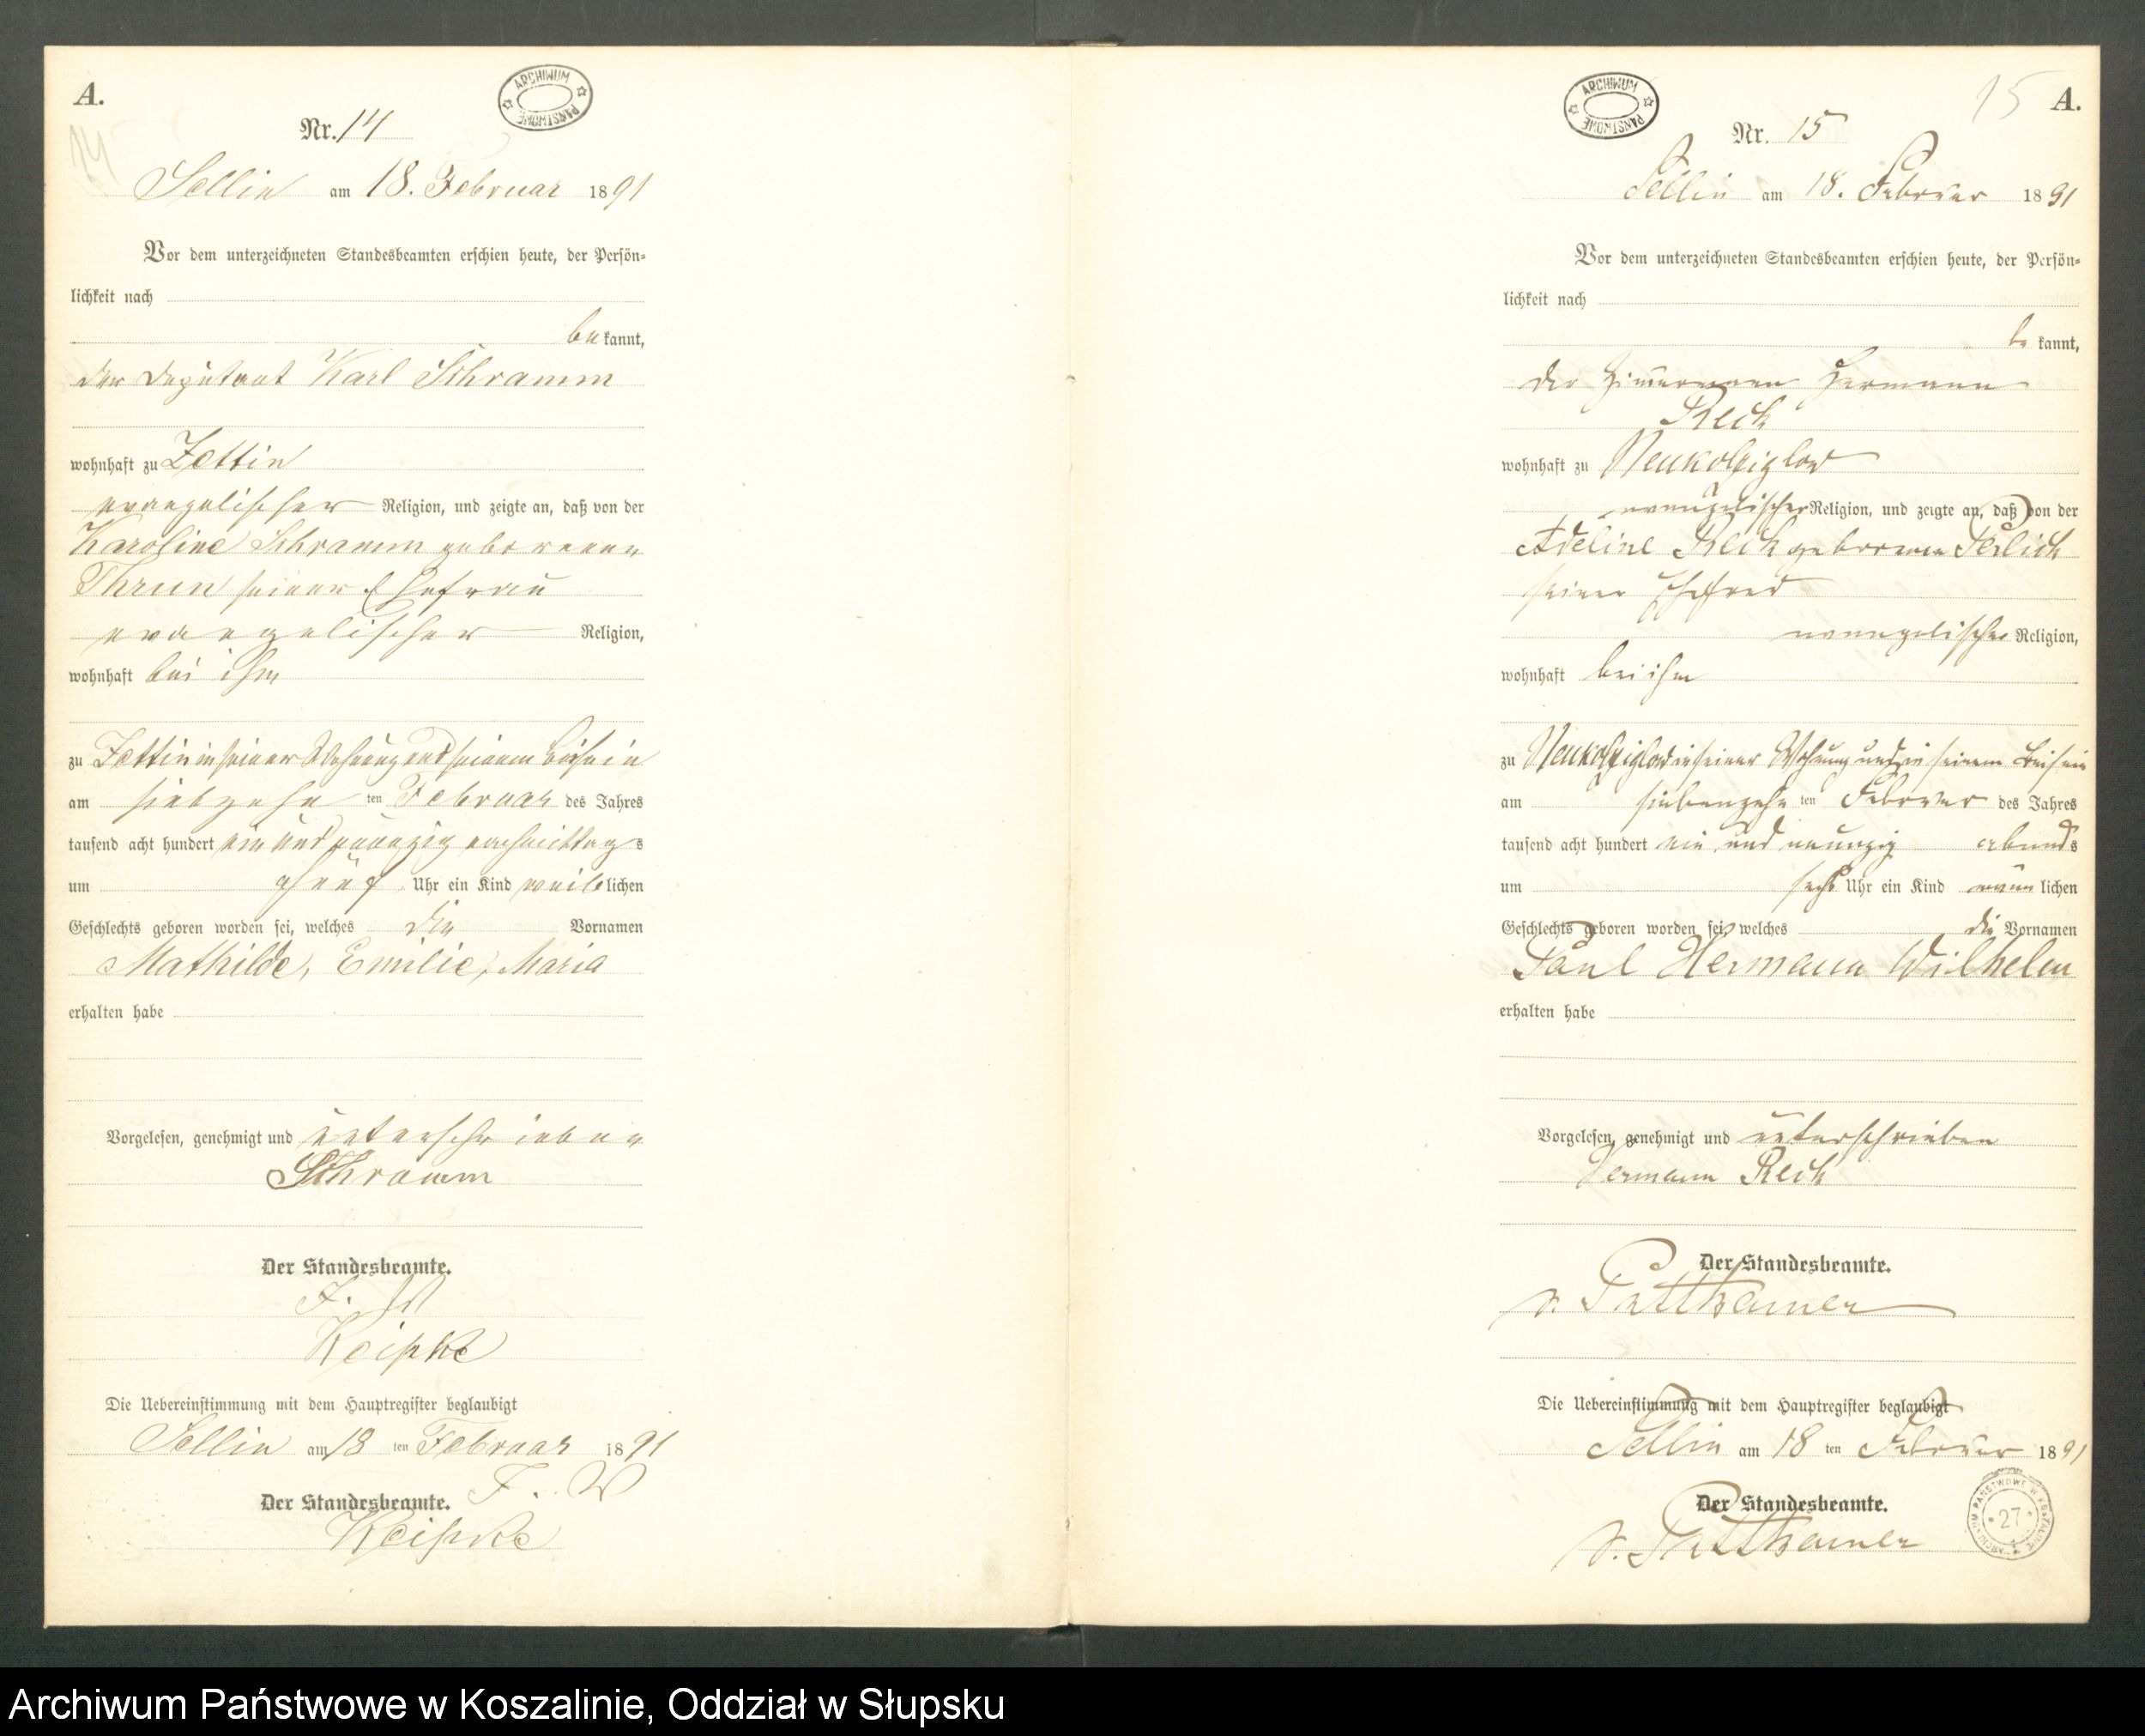 A.
14
ARCHIWUM PAŃSTWOWE
Nr. 14
Sellin am 18. Februar 1891
Vor dem unterzeichneten Standesbeamten erschien heute, der Persön-
lichkeit nach
bekannt,
der Deputant Karl Schramm
wohnhaft zu Zettin
evangelischer Religion, und zeigte an, daß von der
Karoline Schramm geborenen
Thrun seiner Ehefrau
evangelischer Religion,
wohnhaft bei ihm
zu Zettin in seiner Wohnung und seinem Beisein
am siebzehn ten Februar des Jahres
tausend acht hundert ein und neunzig nachmittags
um Uhr ein Kind weiblichen
Geschlechts geboren worden sei, welches die Vornamen
Mathilde, Emilie, Maria
erhalten habe
Vorgelesen, genehmigt und unterschrieben
Schramm
Der Standesbeamte.
Die Uebereinstimmung mit dem Hauptregister beglaubigt
Sellin am 18 ten Februar 1891
Der Standesbeamte.
15
A.
ARCHIWUM PAŃSTWOWE
Nr. 15
Sellin am 18. Februar 1891
Vor dem unterzeichneten Standesbeamten erschien heute, der Persön-
lichkeit nach
bekannt,
der Zimmermann Hermann
Reck
wohnhaft zu Neukolziglow
evangelischer Religion, und zeigte an, daß von der
Adeline Reck geborenen
seiner Ehefrau
evangelischer Religion,
wohnhaft bei ihm
zu Neukolziglow in seiner Wohnung und in seinem Beisein
am siebenzehn ten Februar des Jahres
tausend acht hundert ein und neunzig abends
um sechs Uhr ein Kind männlichen
Geschlechts geboren worden sei, welches die Vornamen
Paul Hermann Wilhelm
erhalten habe
Vorgelesen, genehmigt und unterschrieben
Hermann Reck
Der Standesbeamte.
v. Puttkamer
Die Uebereinstimmung mit dem Hauptregister beglaubigt
Sellin am 18 ten Februar 1891
Der Standesbeamte.
v. Puttkamer
27
Archiwum Państwowe w Koszalinie, Oddział w Słupsku